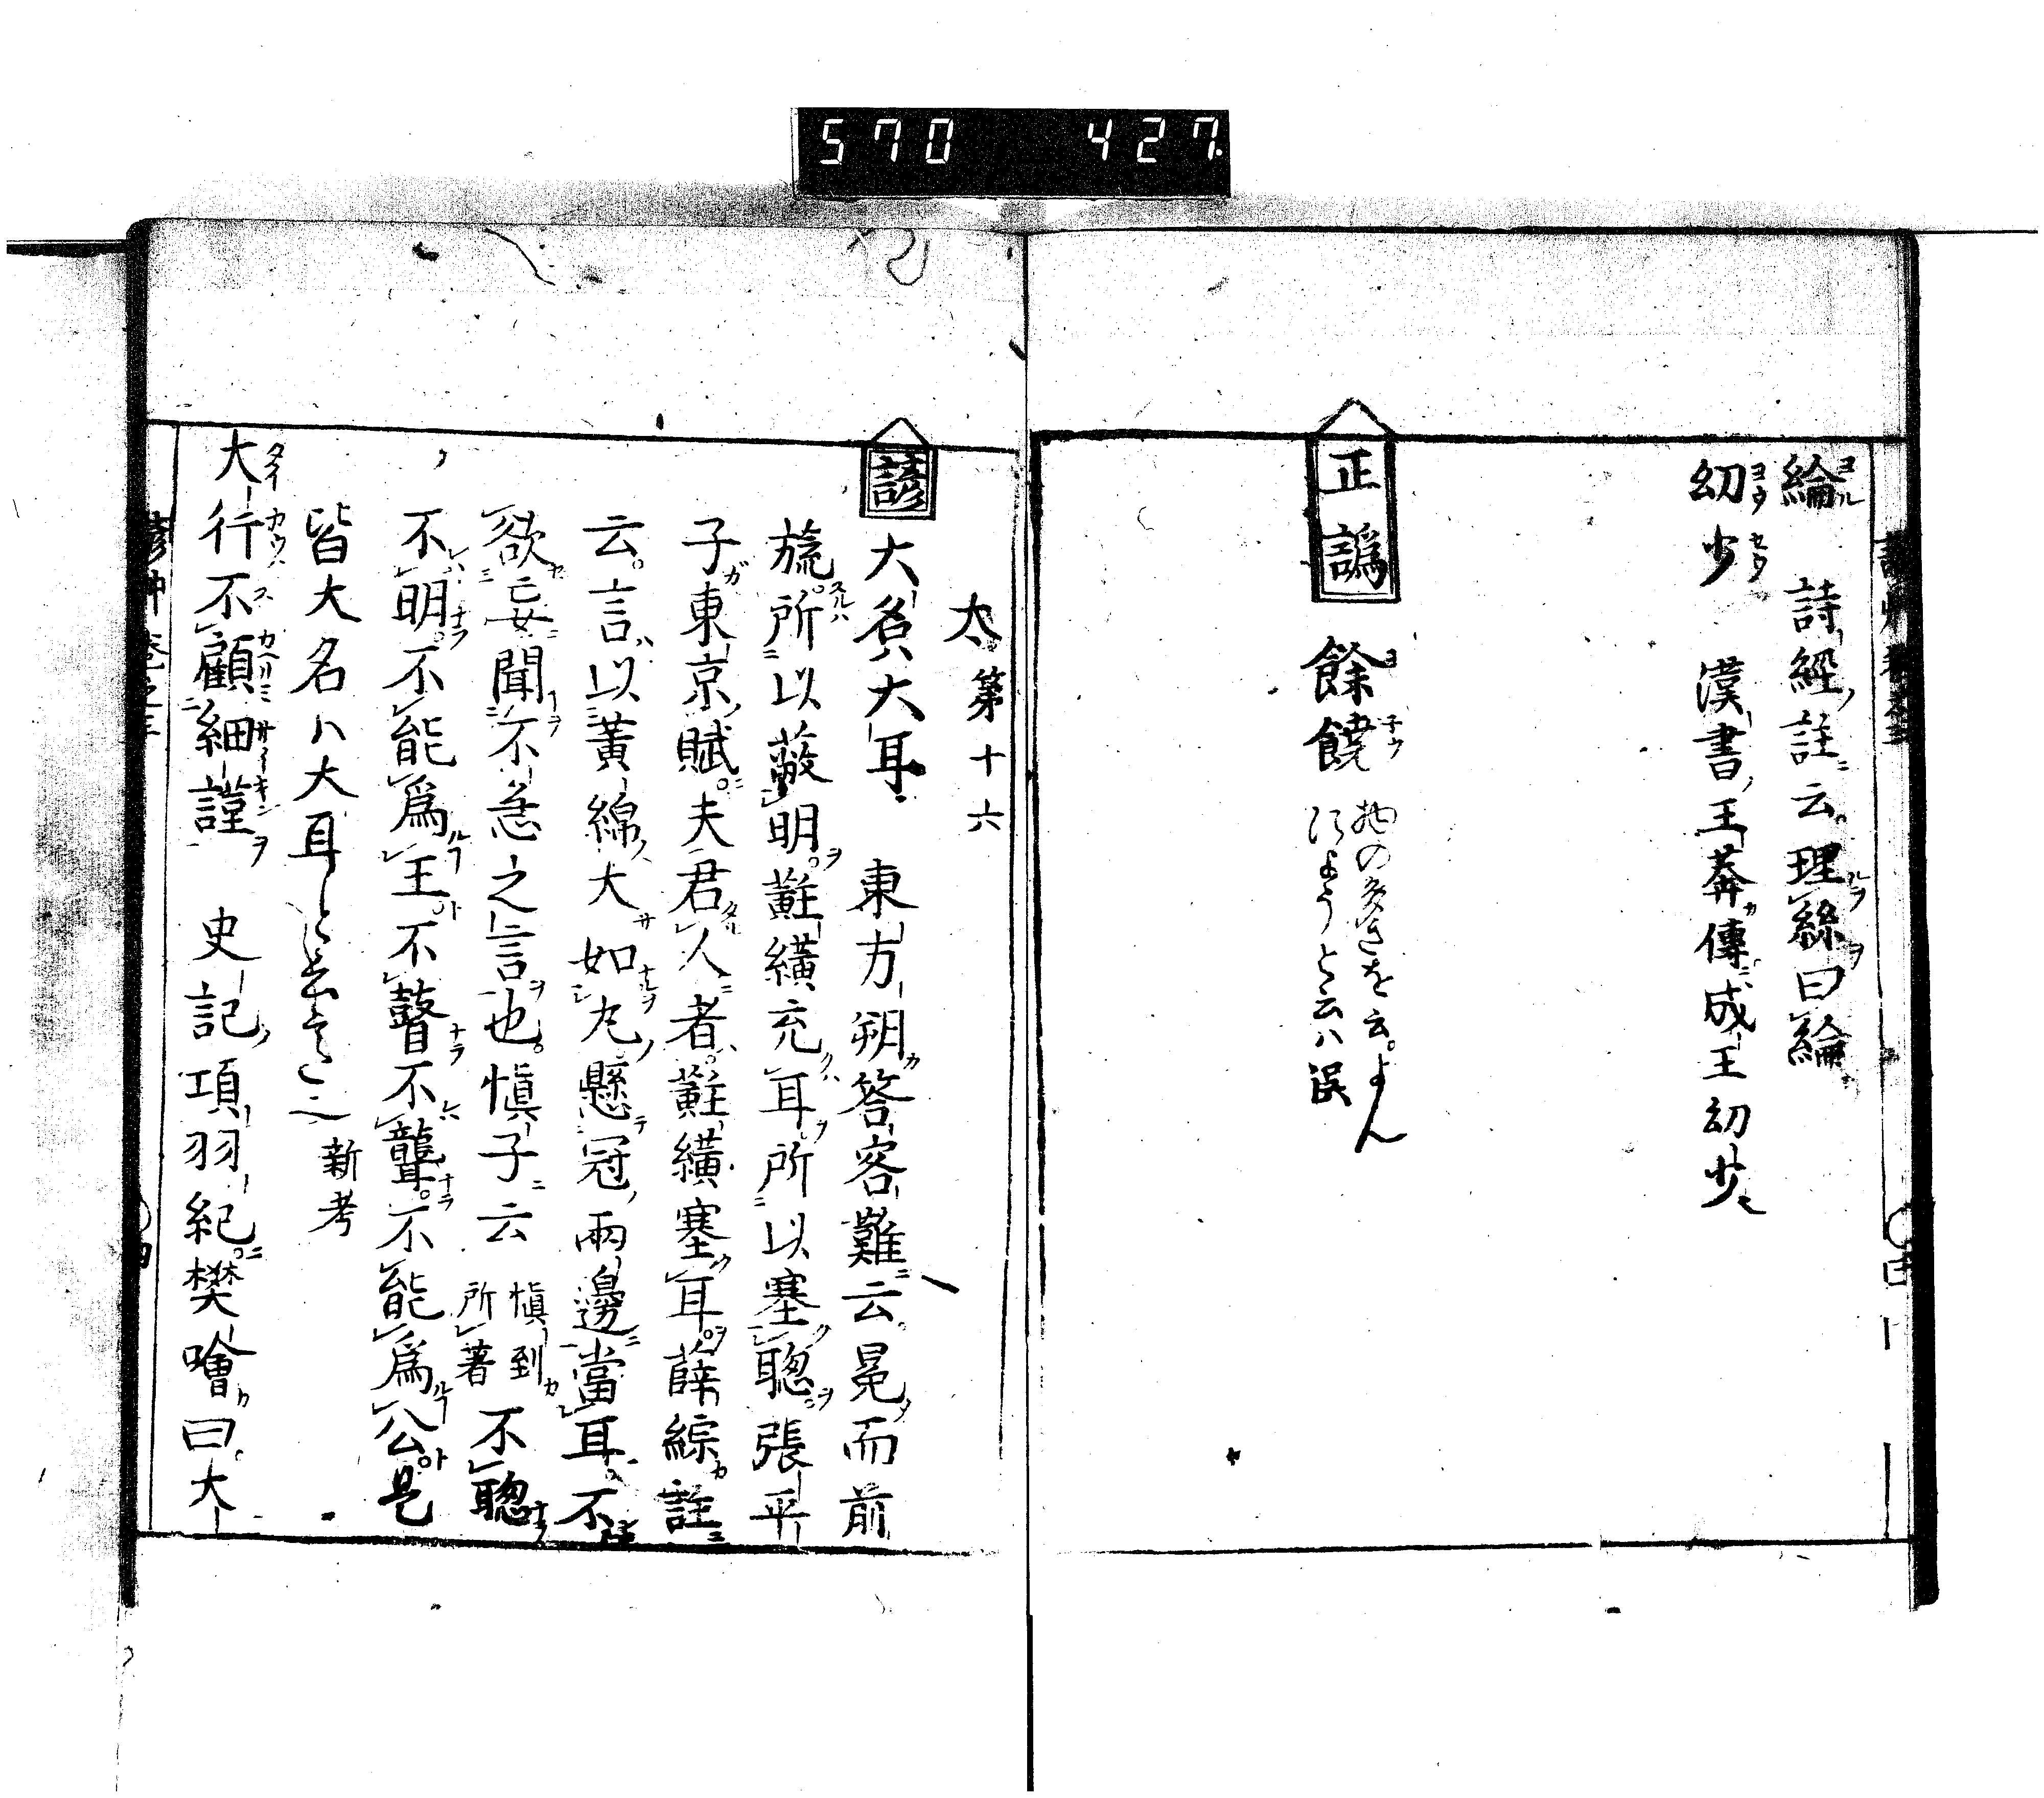 570 427
綸 詩經註云理絲曰綸
ヨル
幼少 漢書王莽傳成王幼少
ヨウ セウ
正譌 餘饒 物の多きを云よん
ヨ子ウ
にようと云ハ誤
太第十六
諺 大名ハ大耳 東方朔答客難云冕而前
旒所以蔽明黈纊充耳所以塞聰張平
子東京賦夫君人者黈纊塞耳薛綜註
云言以黃綿大如丸懸冠兩邊當耳不
欲妄聞不急之言也慎子云 慎到所著 不聰
不明不能爲王不瞽不聾不能爲公是
皆大名ハ大耳と云こと也 新考
大行不顧細謹 史記項羽紀樊噲曰大
タイカウハスカヘリミサイキンヲ